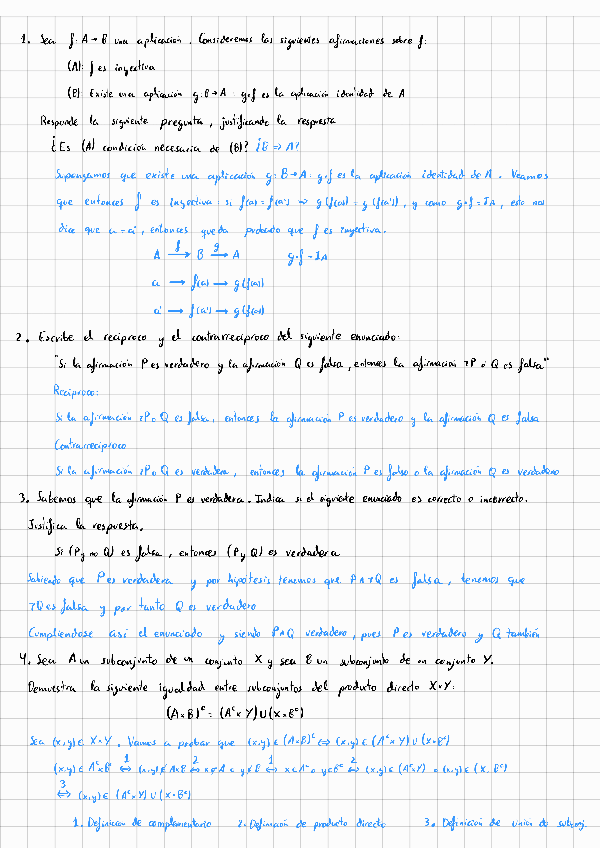 1. Sea f: A → B una aplicación. Consideremos las siguientes afirmaciones sobre f:
(A): f es inyectiva
(B): Existe una aplicación g: B → A : g∘f es la aplicación identidad de A
Responde la siguiente pregunta, justificando la respuesta
¿Es (A) condición necesaria de (B)? ¿B ⇒ A?
Supongamos que existe una aplicación g: B → A : g∘f es la aplicación identidad de A. Veamos
que entonces f es inyectiva: si f(a) = f(a') ⇒ g(f(a)) = g(f(a')), y como g∘f = IA, esto nos
dice que a = a', entonces queda probado que f es inyectiva.
A f→ B g→ A g∘f = IA
a → f(a) → g(f(a))
a' → f(a') → g(f(a'))
2. Escribe el recíproco y el contrarrecíproco del siguiente enunciado:
"Si la afirmación P es verdadero y la afirmación Q es falsa, entonces la afirmación ¬P ó Q es falsa"
Recíproco:
Si la afirmación ¬P o Q es falsa, entonces la afirmación P es verdadero y la afirmación Q es falsa
Contrarrecíproco
Si la afirmación ¬P o Q es verdadera, entonces la afirmación P es falso o la afirmación Q es verdadero
3. Sabemos que la afirmación P es verdadera. Indica si el siguiente enunciado es correcto o incorrecto.
Justifica la respuesta.
Si (P y no Q) es falsa, entonces (P y Q) es verdadera
Sabiendo que P es verdadera y por hipótesis tenemos que P ∧ ¬Q es falsa, tenemos que
¬Q es falsa y por tanto Q es verdadero
Cumpliendose así el enunciado y siendo P∧Q verdadero, pues P es verdadero y Q también
4. Sea A un subconjunto de un conjunto X y sea B un subconjunto de un conjunto Y.
Demuestra la siguiente igualdad entre subconjuntos del producto directo X×Y:
(A×B)ᶜ = (Aᶜ×Y) ∪ (X×Bᶜ)
Sea (x,y) ∈ X×Y. Vamos a probar que (x,y) ∈ (A×B)ᶜ ⇔ (x,y) ∈ (Aᶜ×Y) ∪ (X×Bᶜ)
(x,y) ∈ A×Bᶜ 1⇔ (x,y) ∉ A×B 2⇔ x ∉ A o y ∉ B 1⇔ x ∈ Aᶜ o y ∈ Bᶜ 2⇔ (x,y) ∈ (Aᶜ×Y) o (x,y) ∈ (X×Bᶜ)
3⇔ (x,y) ∈ (Aᶜ×Y) ∪ (X×Bᶜ)
1. Definicion de complementario 2. Definición de producto directo 3. Definición de union de subconj.